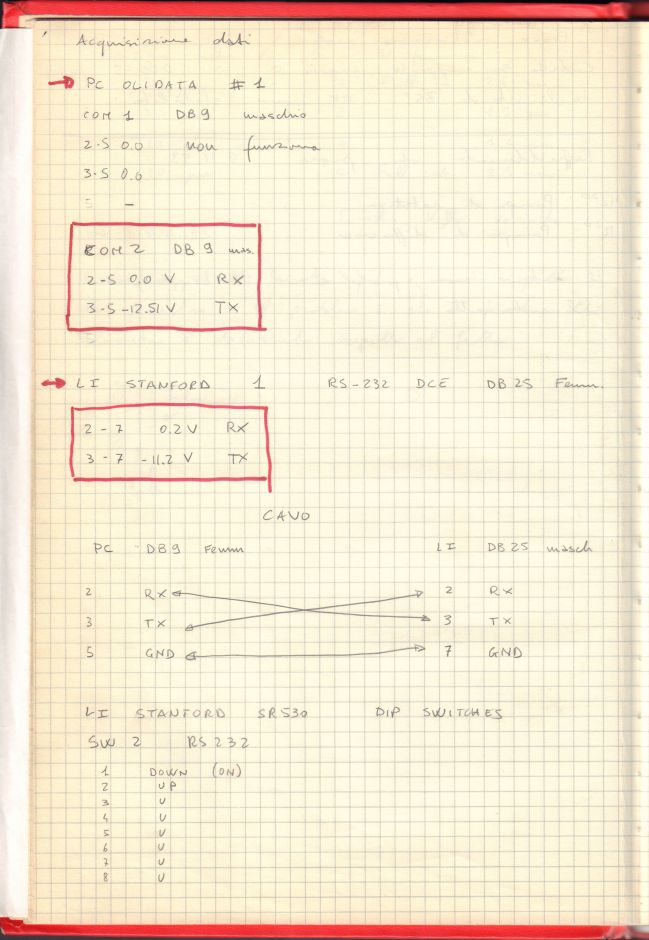 Acquisizione dati
PC OLIDATA #1
COM 1 DB9 maschio
2-5 0.0 non funziona
3-5 0.0
5 -
COM 2 DB9 mas.
2-5 0.0 V RX
3-5 -12.51 V TX
LI STANFORD 1 RS-232 DCE DB25 Femm.
2-7 0.2 V RX
3-7 -11.2 V TX
CAVO
PC DB9 Femm LI DB25 masch
2 RX 2 RX
3 TX 3 TX
5 GND 7 GND
LI STANFORD SR530 DIP SWITCHES
SW 2 RS232
1 DOWN (ON)
2 UP
3 U
4 U
5 U
6 U
7 U
8 U